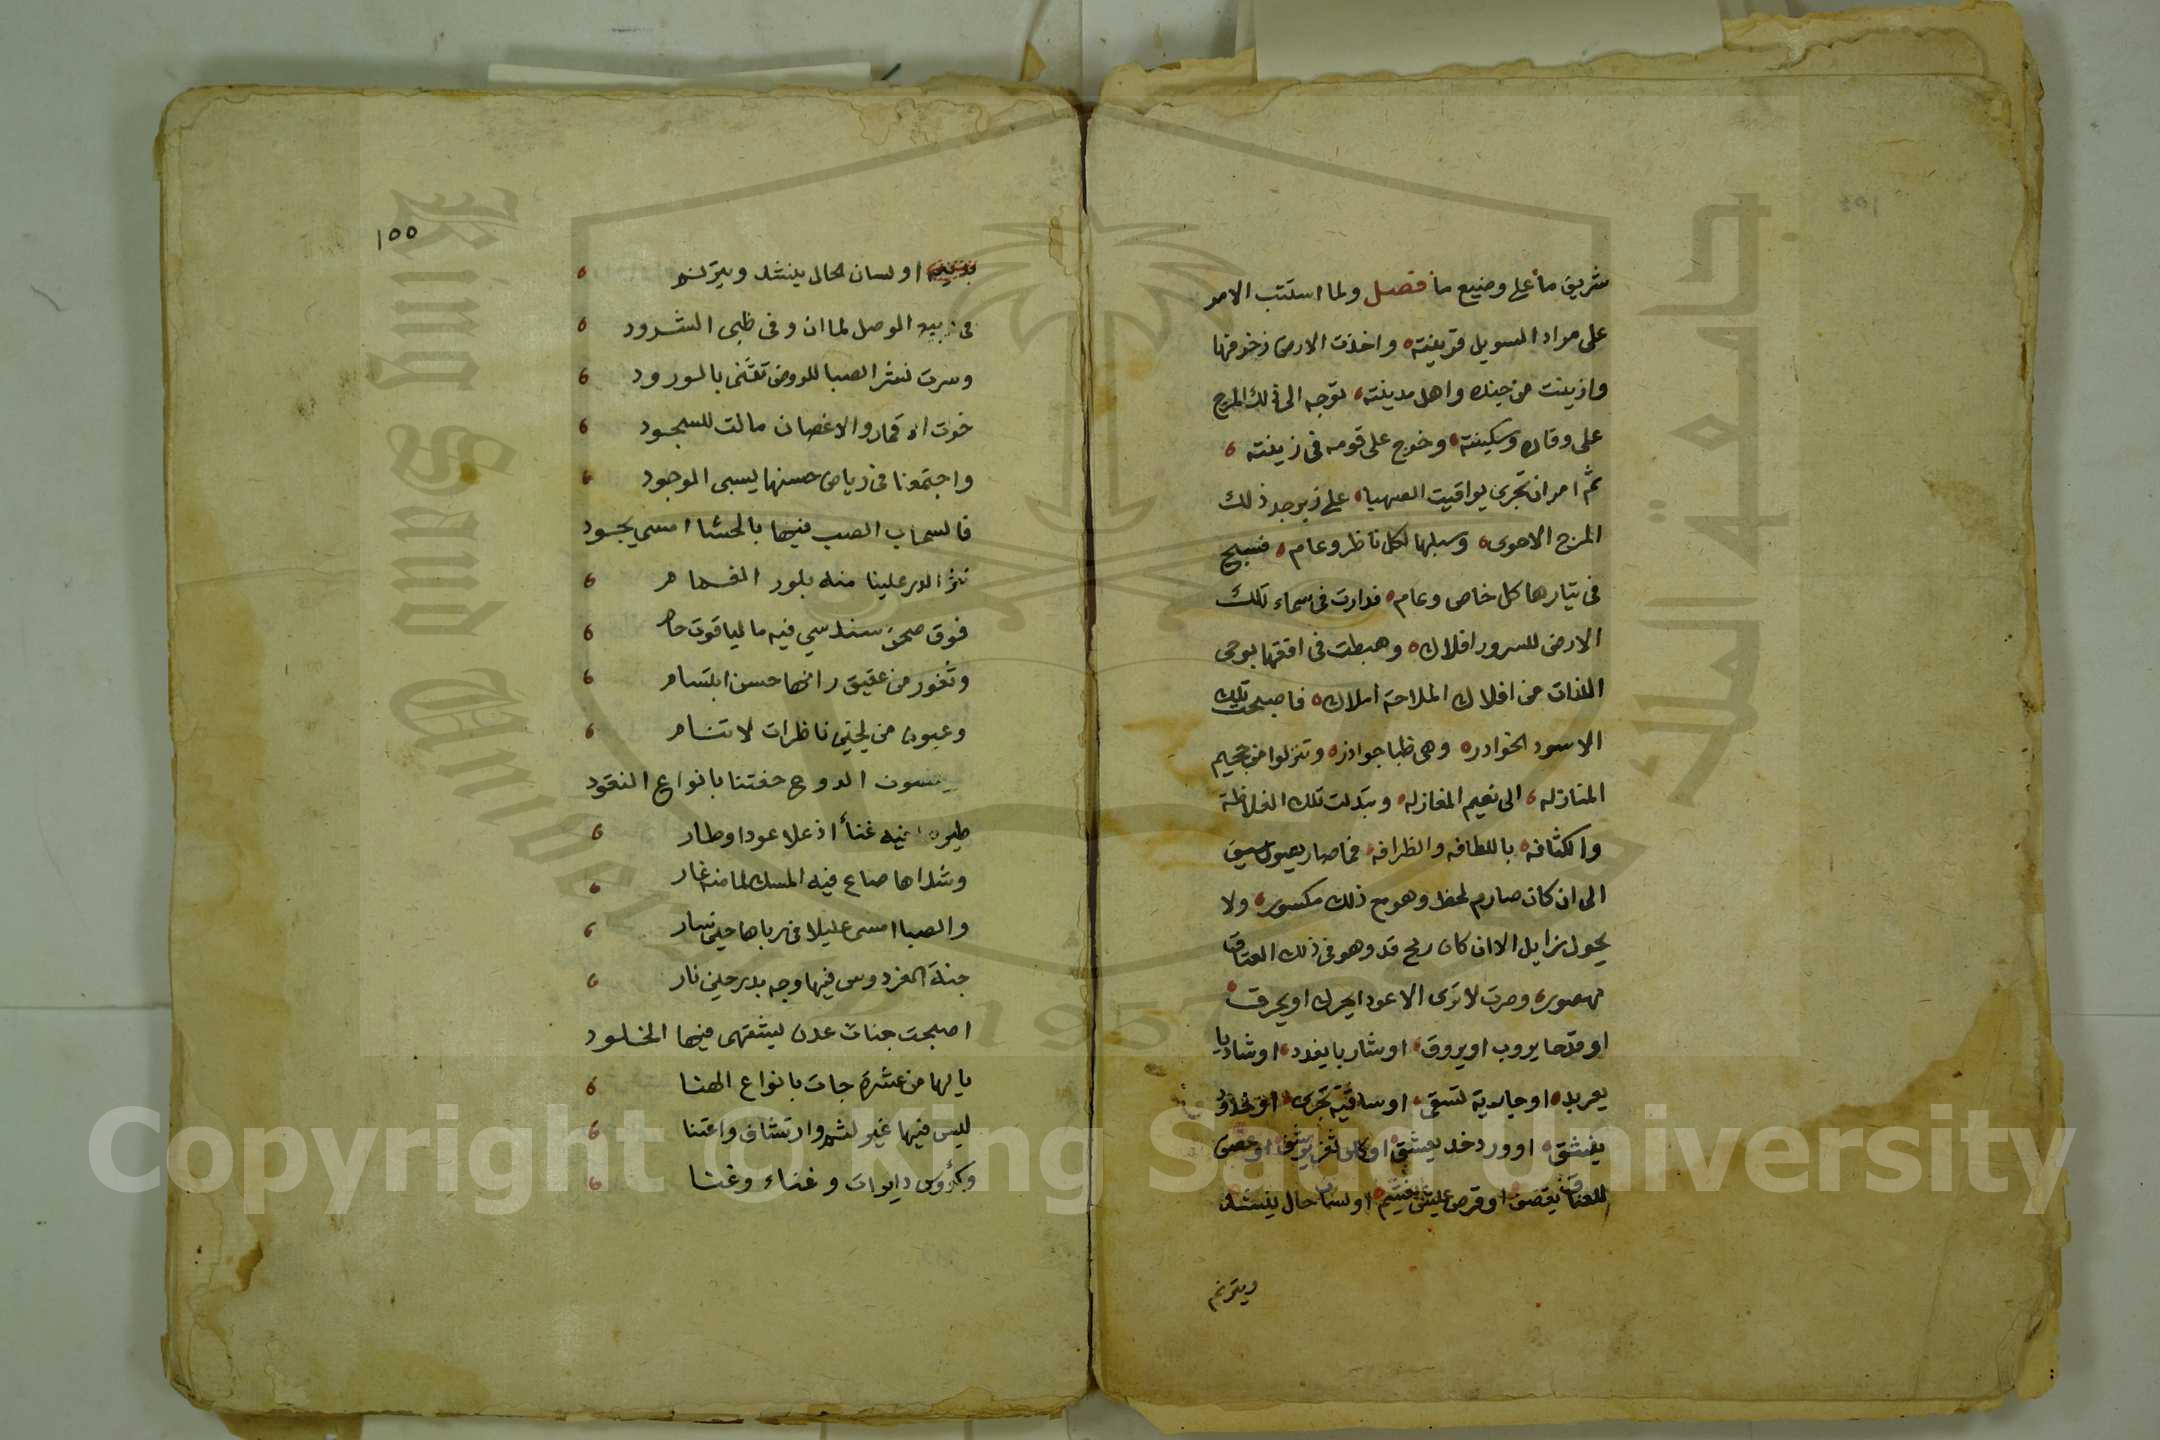 شريق ما على وضيع ما فصل ولما استتب الامر
على مراد السويل قرينته واخذت الارض زخرفها
وازينت من جنده واهل مدينته توجه الى ذلك المرج
على وقاره وسكينته وخرج على قومه في زينته
ثم امر ان تجرى يواقيت الصهبا على زبرجد ذلك
المرج الاحوى وسبلها لكل ناظر وعام فسبح
في تيارها كل خاص وعام فدارت في سماء تلك
الارض للسرور افلاك وهبطت في افقها بوحى
اللذات من افلاك الملاحة املاك فاصبحت تلك
الاسود الخوادر وهى ظبا جوادر وتنزلوا من جحيم
المنازله الى نعيم المغازله وتبدلت تلك الغلاظة
والكثافه باللطافه والظرافه فما صار يصول سيف
الى ان كان صارم لحظ وهو مع ذلك مكسور ولا
يحول بزابل الا ان كان رمح قد وهو في ذلك العناق
مهصور وصرت لا ترى الا عودا يحرك او يحرق
او قدحا يروب او يروق او شاربا يغرد او شاديا
يعربد او جارية تسقى او ساقية تجرى او خدود
يغشق او ورد خد يعشق او كاس ثغر يرشف او غصن
للعناق يقصف او قرص عليش يغتنم او لسان حال ينشد
ويترنم
١٥٥
او لسان الحال ينشد ويترنم
الوصل لما ان وفى ظبى الشرود
وسرت نشر الصبا للروض تغنى بالورود
خرت اقمار والاغصان مالت للسجود
واجتمعنا في رياض حسنها يسبى الوجود
فالسحاب الصب فيها بالحشا امسي يجود
نثر الدر علينا منه بلور الغمام
فوق صحن سندسي فيه ما لياقوت جام
وثغور من عقيق زانها حسن ابتسام
وعيون من لجين ناظرات لا تنام
الدوح حفتنا بانواع النقود
طيره غناء اذ علا عودا وطار
وشذاها ضاع فيه المسك لما منه غار
والصبا امسى عليلا في رباها حين سار
جنة الفردوس فيها وجه بدر حين نار
اصبحت جنات عدن ليشتهى فيها الخلود
يا لها من عشرة جات بانواع الهنا
ليس فيها غير لثم وارتشاف واعتنا
وكؤس دايرات وغناء وغنا
Copyright © King Saud University
King Saud University
جامعة الملك
1957